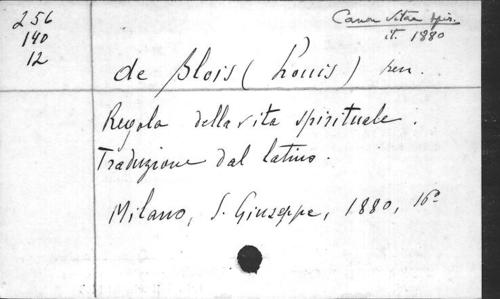 256
140
12
Canon Vitae spir.
it. 1880
de Blois (Louis) ven.
Regola della vita spirituale.
Traduzione dal latino.
Milano, S. Giuseppe, 1880, 16º